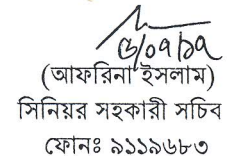 ৫/০৭/১৭
(আফরিনা ইসলাম)
সিনিয়র সহকারী সচিব
ফোনঃ ৯১১৯৬৮৩